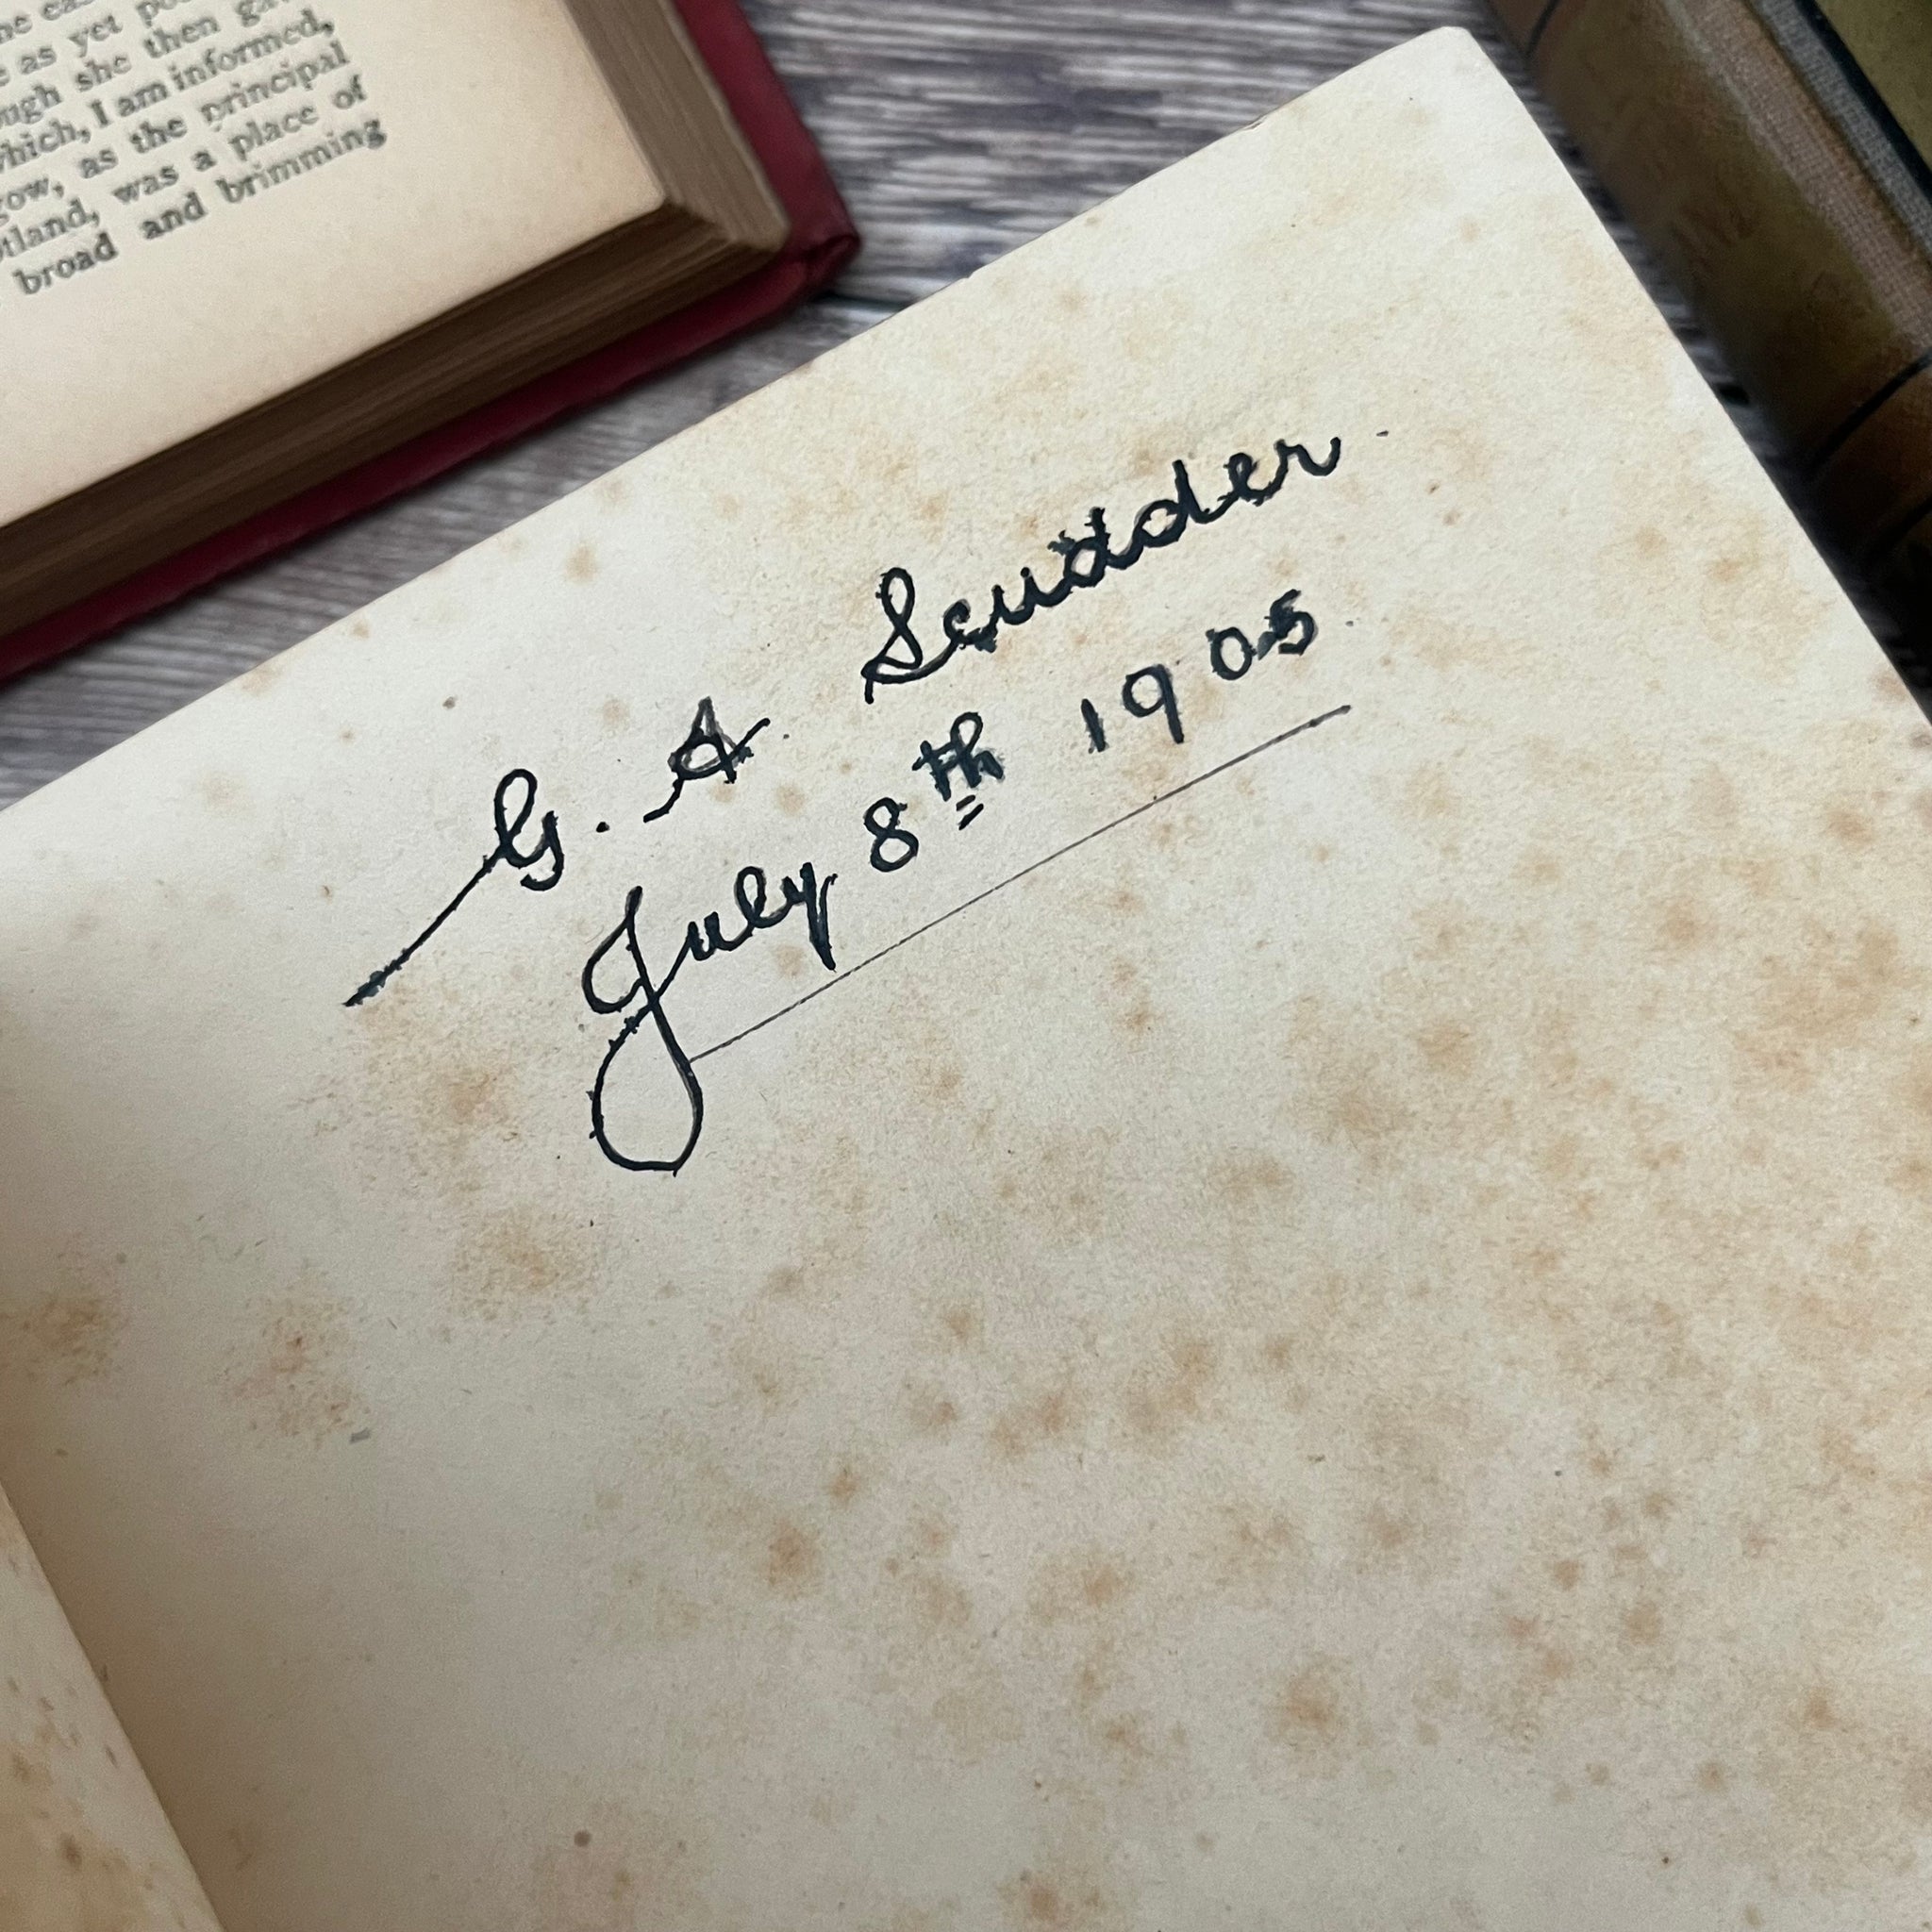 as yet
she then
which, I am informed,
as the principal
was a place of
broad and brimming
G. A. Scudder.
July 8th 1905.